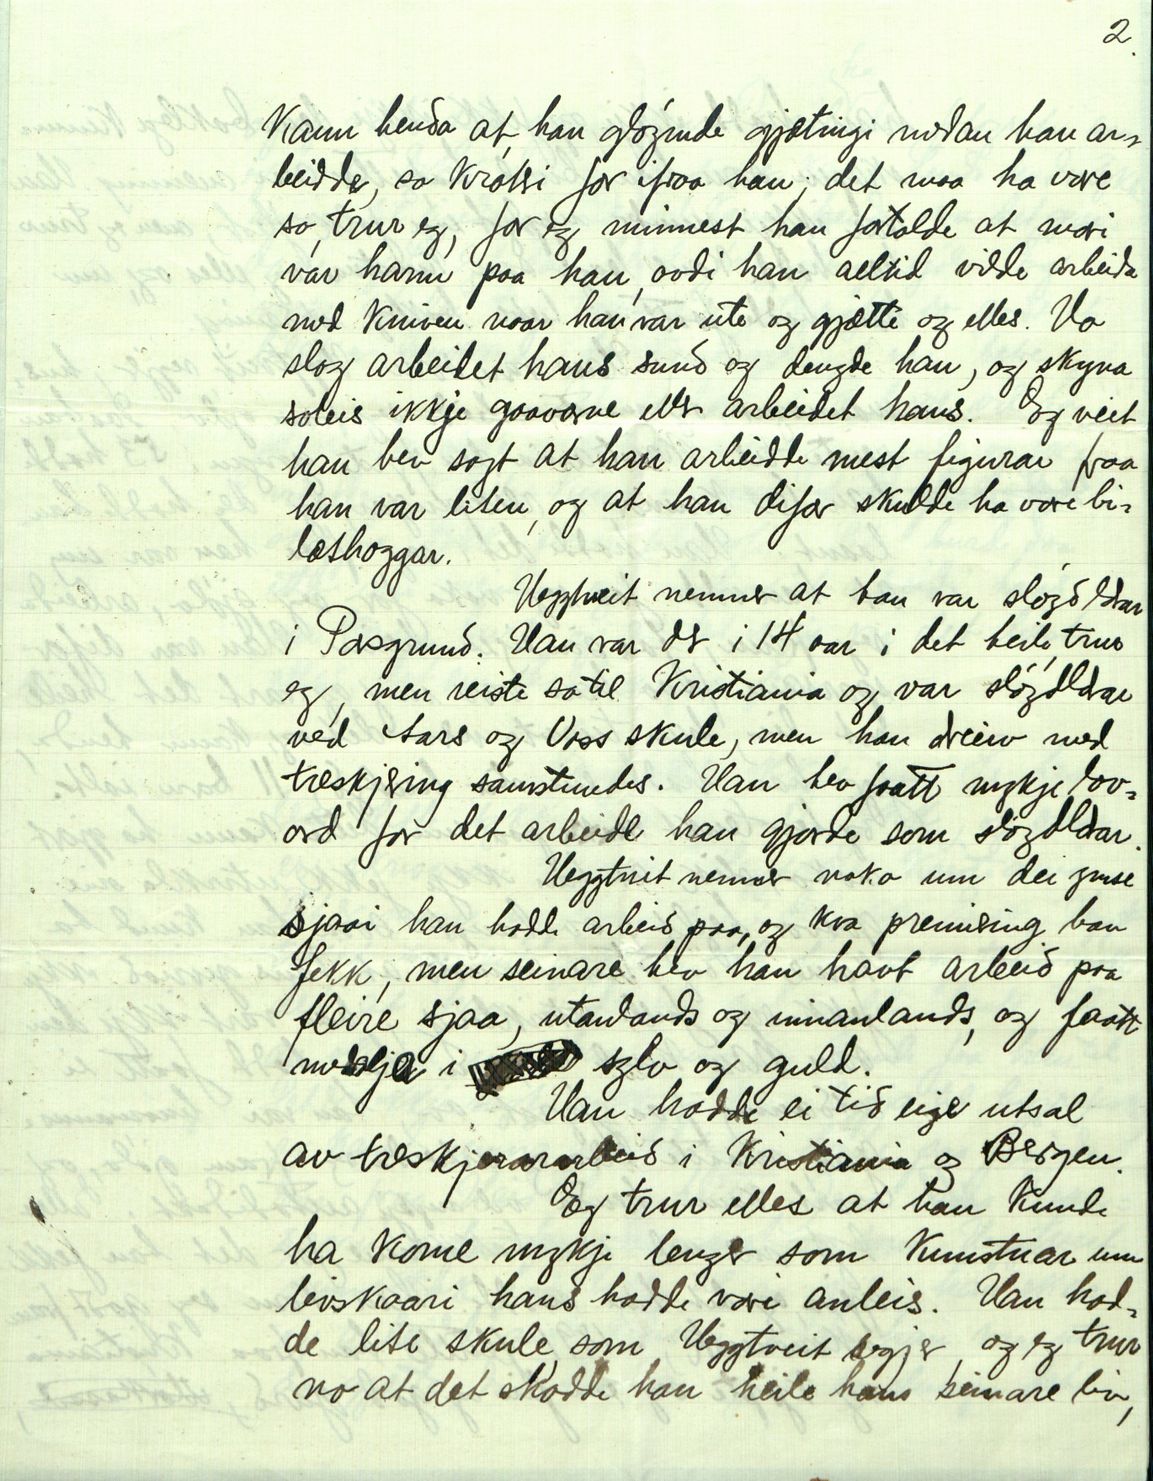 2.
Kann henda at, han gløymde gjætingi medan han ar-
beidde, so krøtri for ifraa han; det maa ha vore
so, trur eg, for eg minnest han fortalde at mori
var harm paa han, avdi han alltid vilde arbeida
med kniven naar han var ute og gjætte og elles. Ho
slog arbeidet hans sund og dengde han, og skyna
soleis ikkje gaavorne eller arbeidet hans. Eg veit
han hev sagt at han arbeidde mest figurar fraa
han var liten, og at han difor skulde ha vore bi-
læthoggar.
Heggtveit nemner at han var sløydlærar
i Porsgrund. Han var der i 14 aar i det heile, trur
eg, men reiste so til Kristiania og var sløydlærar
ved Aars og Voss skule, men han dreiv med
treskjering samstundes. Han hev faatt mykje lov-
ord for det arbeide han gjorde som sløydlærar.
Heggtveit nemner noko um dei ymse
sjaai han hadde arbeid paa, og kva premiering han
fekk, men seinare hev han havt arbeid paa
fleire sjaa, utanlands og innanlands, og faatt
medalje i sylv og guld.
Han hadde ei tid eige utsal
av treskjerararbeid i Kristiania og Bergen.
Eg trur elles at han kunde
ha kome mykje lenger som kunstnar um
livskaari hans hadde vore anleis. Han had-
de lite skule, som Heggtveit segjer, og eg trur
no at det skadde han heile hans seinare liv,